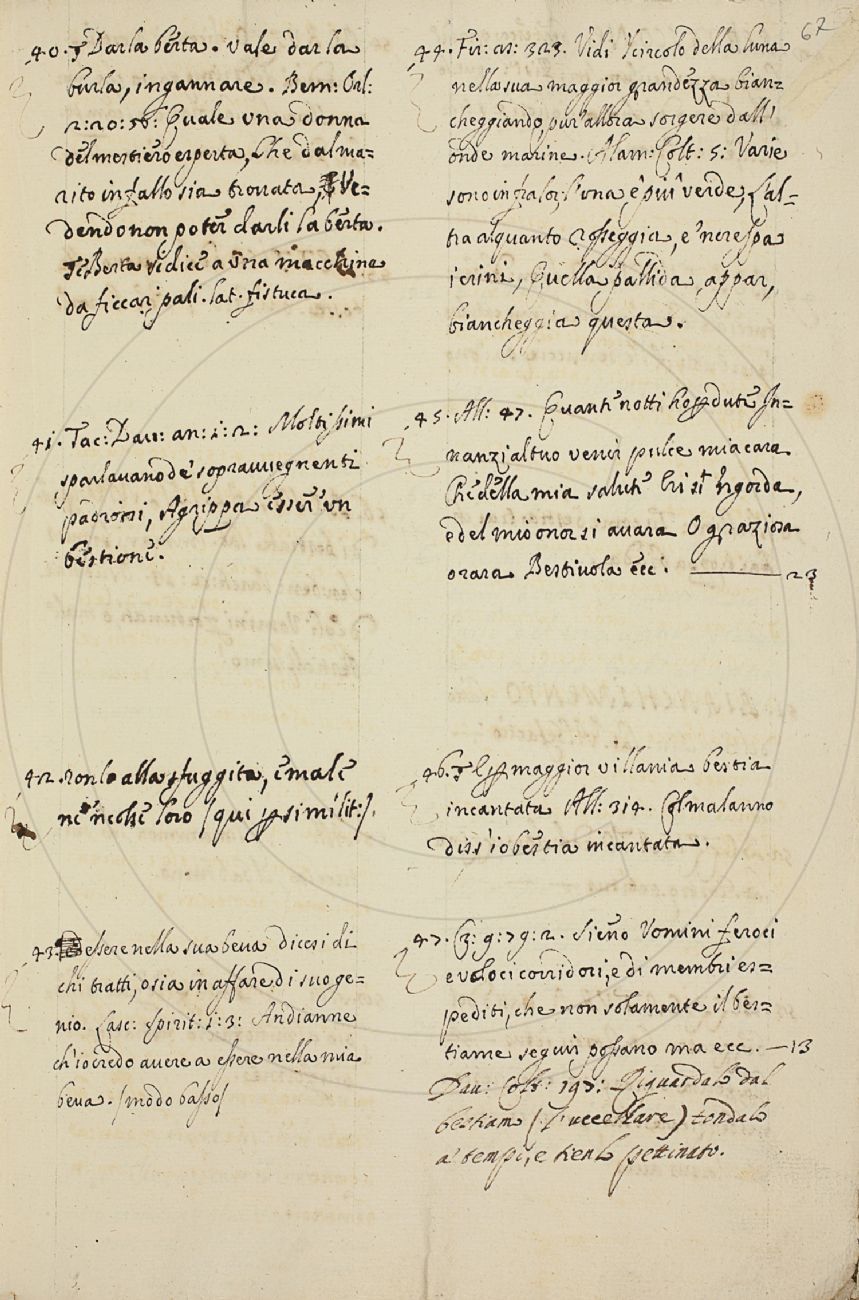 67
40. § Dar la berta. vale dar la
burla, ingannare. Bern: Orl:
2: 20: 56: Quale una donna
del mestiero esperta, Che dal ma=
rito in fallo sia trovata, Ve=
dendo non poter darli la berta.
§ Berta si dice a una macchina
da ficcar pali. lat. fistuca.
41. Tac: Dav: an: 1: 2: Moltissimi
sparlavano de' sopravvegnenti
padroni, Agrippa esser un
bestione.
42. alla sfuggita, e male
loro / qui similit: /.
43. essere nella sua beva dicesi di
chi tratti, o sia in affare di suo ge=
nio. Lasc: Spirit: 1: 3: Andianne
ch'io credo avere a essere nella mia
beva. / modo basso /
44. Fir: as: 323. Vidi 'l circolo della luna
nella sua maggior grandezza bian=
cheggiando, pur allora sorgere dall'
onde marine. Alam: Colt: 5: Varie
sono in fra lor, l'una è più verde, L'al=
tra alquanto rosseggia, e 'ncrespa
i crini, Quella pallida appar,
biancheggia questa.
45. All: 47. Quante notti ho perdute In=
nanzi al tuo venir pulce mia cara
Che della mia salute eri sì 'ngorda,
e del mio onor sì avara O graziosa
o rara Bestivola ecc. ——— 23
46. § Per maggior villania bestia
incantata All: 314. Col malanno
diss'io bestia incantata.
47. Cr: 9: 79: 2. Sieno Uomini feroci
e veloci corridori, e di membri es=
pediti, che non solamente il bes=
tiame seguir possano ma ecc. — 13
Dav: Colt: 197: Riguardalo dal
bestiame ( l'uccellare ) tondalo
a' tempi, e tienlo pettinato.